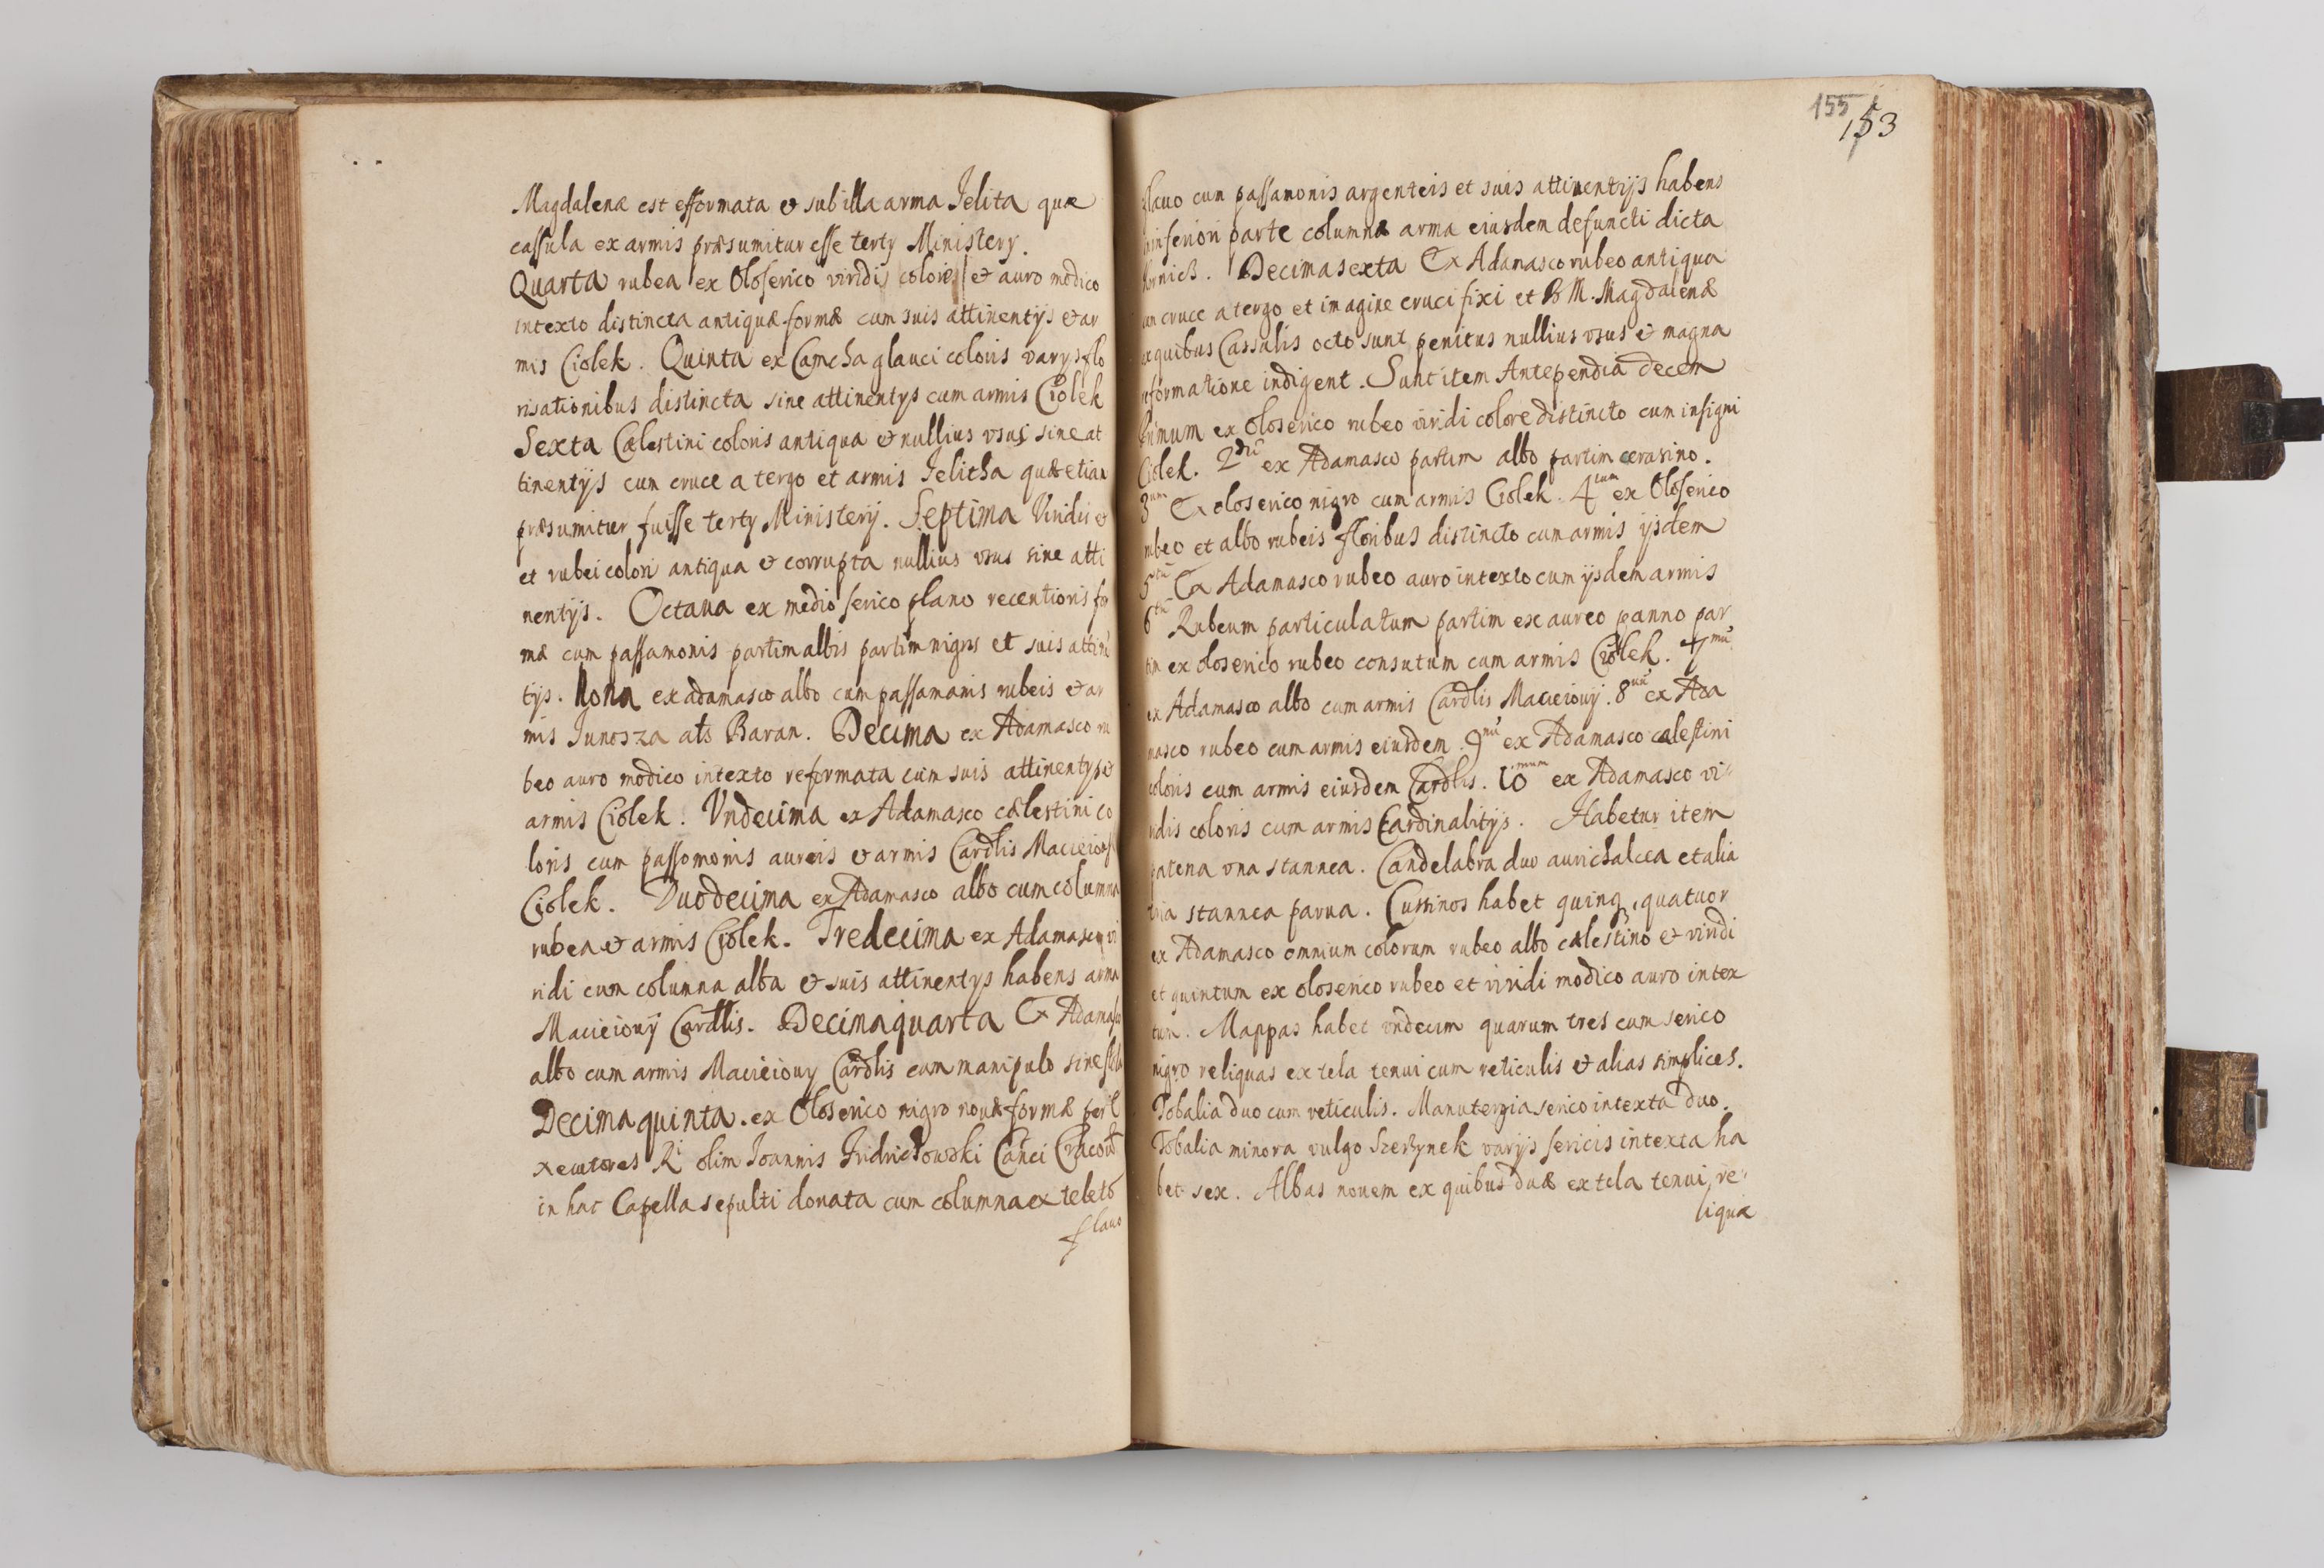 Magdalenæ est efformata et sub illa arma Jelita quæ
cassula ex armis præsumitur esse tertÿ Ministerÿ.
Quarta rubea ex Oloserico viridis coloris et auro modico
intexto distincta antiquæ formæ cum suis attinentÿs et ar
mis Ciolek. Quinta ex Camcha glauci coloris varÿs flo
risationibus distincta sine attinentÿs cum armis Ciolek
Sexta Cælestini coloris antiqua et nullius usus sine at
tinentÿs cum cruce a tergo et armis Jelitha quæ etiam
præsumitur fuisse tertÿ Ministerÿ. Septima Viridis et
et rubei colori antiqua et corrupta nullius vsus sine atti
nentÿs. Octaua ex medio serico plano recentioris for
mæ cum passamonis partim albis partim nigris et suis attinē
tÿs. Nona ex adamasco albo cum passamanis rubeis et ar
mis Junosza ats Baran. Decima ex Adamasco ru
beo auro modico intexto reformata cum suis attinentÿs et
armis Ciolek. Vndecima ex Adamasco cælestini co
loris cum passomonis aureis et armis Cardlis
Ciolek. Duodecima ex Adamasco albo cum columna
rubea et armis Ciolek. Tredecima ex Adamasco vi
ridi cum columna alba et suis attinentÿs habens arma
Macieiouÿ Cardlis. Decimaquarta Ex Adamasco
albo cum armis Macieiouÿ Cardlis cum manipulo sine stola
Decima quinta. ex Oloserico nigro nouæ formæ per E
xecutores Ri olim Joannis Canci
in hac Capella sepulti donata cum columna ex teletō
flauo
155
153
flauo cum passamonis argenteis et suis attinentÿs habens
in inferiori parte columnæ arma eiusdem defuncti dicta
Decima sexta Ex Adamasco rubeo antiqua
cum cruce a tergo et imagine crucifixi et B M. Magdalenæ
ex quibus Cassulis octo sunt penitus nullius vsus et magna
reformatione indigent. Sunt item Antependia decem
Primum ex oloserico rubeo viridi colore distincto cum insigni
Ciolek. 2dū ex Adamasco partim albo partim cerasino.
3um Ex oloserico nigro cum armis Ciolek. 4tum ex Oloserico
rubeo et albo rubeis floribus distincto cum armis ÿsdem
5tū Ex Adamasco rubeo auro intexto cum ÿsdem armis
6tū Rubeum particulatum partim ex aureo panno par
tim ex oloserico rubeo consutum cum armis Ciolek. 7mū
ex Adamasco albo cum armis Cardlis Macieiouÿ. 8uū ex Ada
masco rubeo cum armis eiusdem. 9nū ex Adamasco cælestini
coloris cum armis eiusdem Cardlis. 10mum ex Adamasco vi
ridis coloris cum armis Cardinalitÿs. Habetur item
patena vna stannea. Candelabra duo aurichalcea et alia
tria stannea parua. Cussinos habet quinq, quatuor
ex Adamasco omnium colorum rubeo albo cælestino et viridi
et quintum ex oloserico rubeo et viridi modico auro intex
tum. Mappas habet vndecim quarum tres cum serico
nigro reliquas ex tela tenui cum reticulis et alias simplices.
Tobalia duo cum reticulis. Manutergia serico intexta duo.
Tobalia minora vulgo Szerzynek varÿs sericis intexta ha
bet sex. Albas nouem ex quibus duæ ex tela tenui, re
liquæ